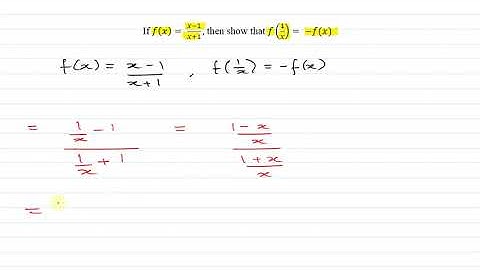 If f(x) = \frac{x-1}{x+1}, then show that f\left(\frac{1}{x}\right) = -f(x)
f(x) = \frac{x-1}{x+1} , f\left(\frac{1}{x}\right) = -f(x)
= \frac{\frac{1}{x} - 1}{\frac{1}{x} + 1} = \frac{\frac{1-x}{x}}{\frac{1+x}{x}}
=